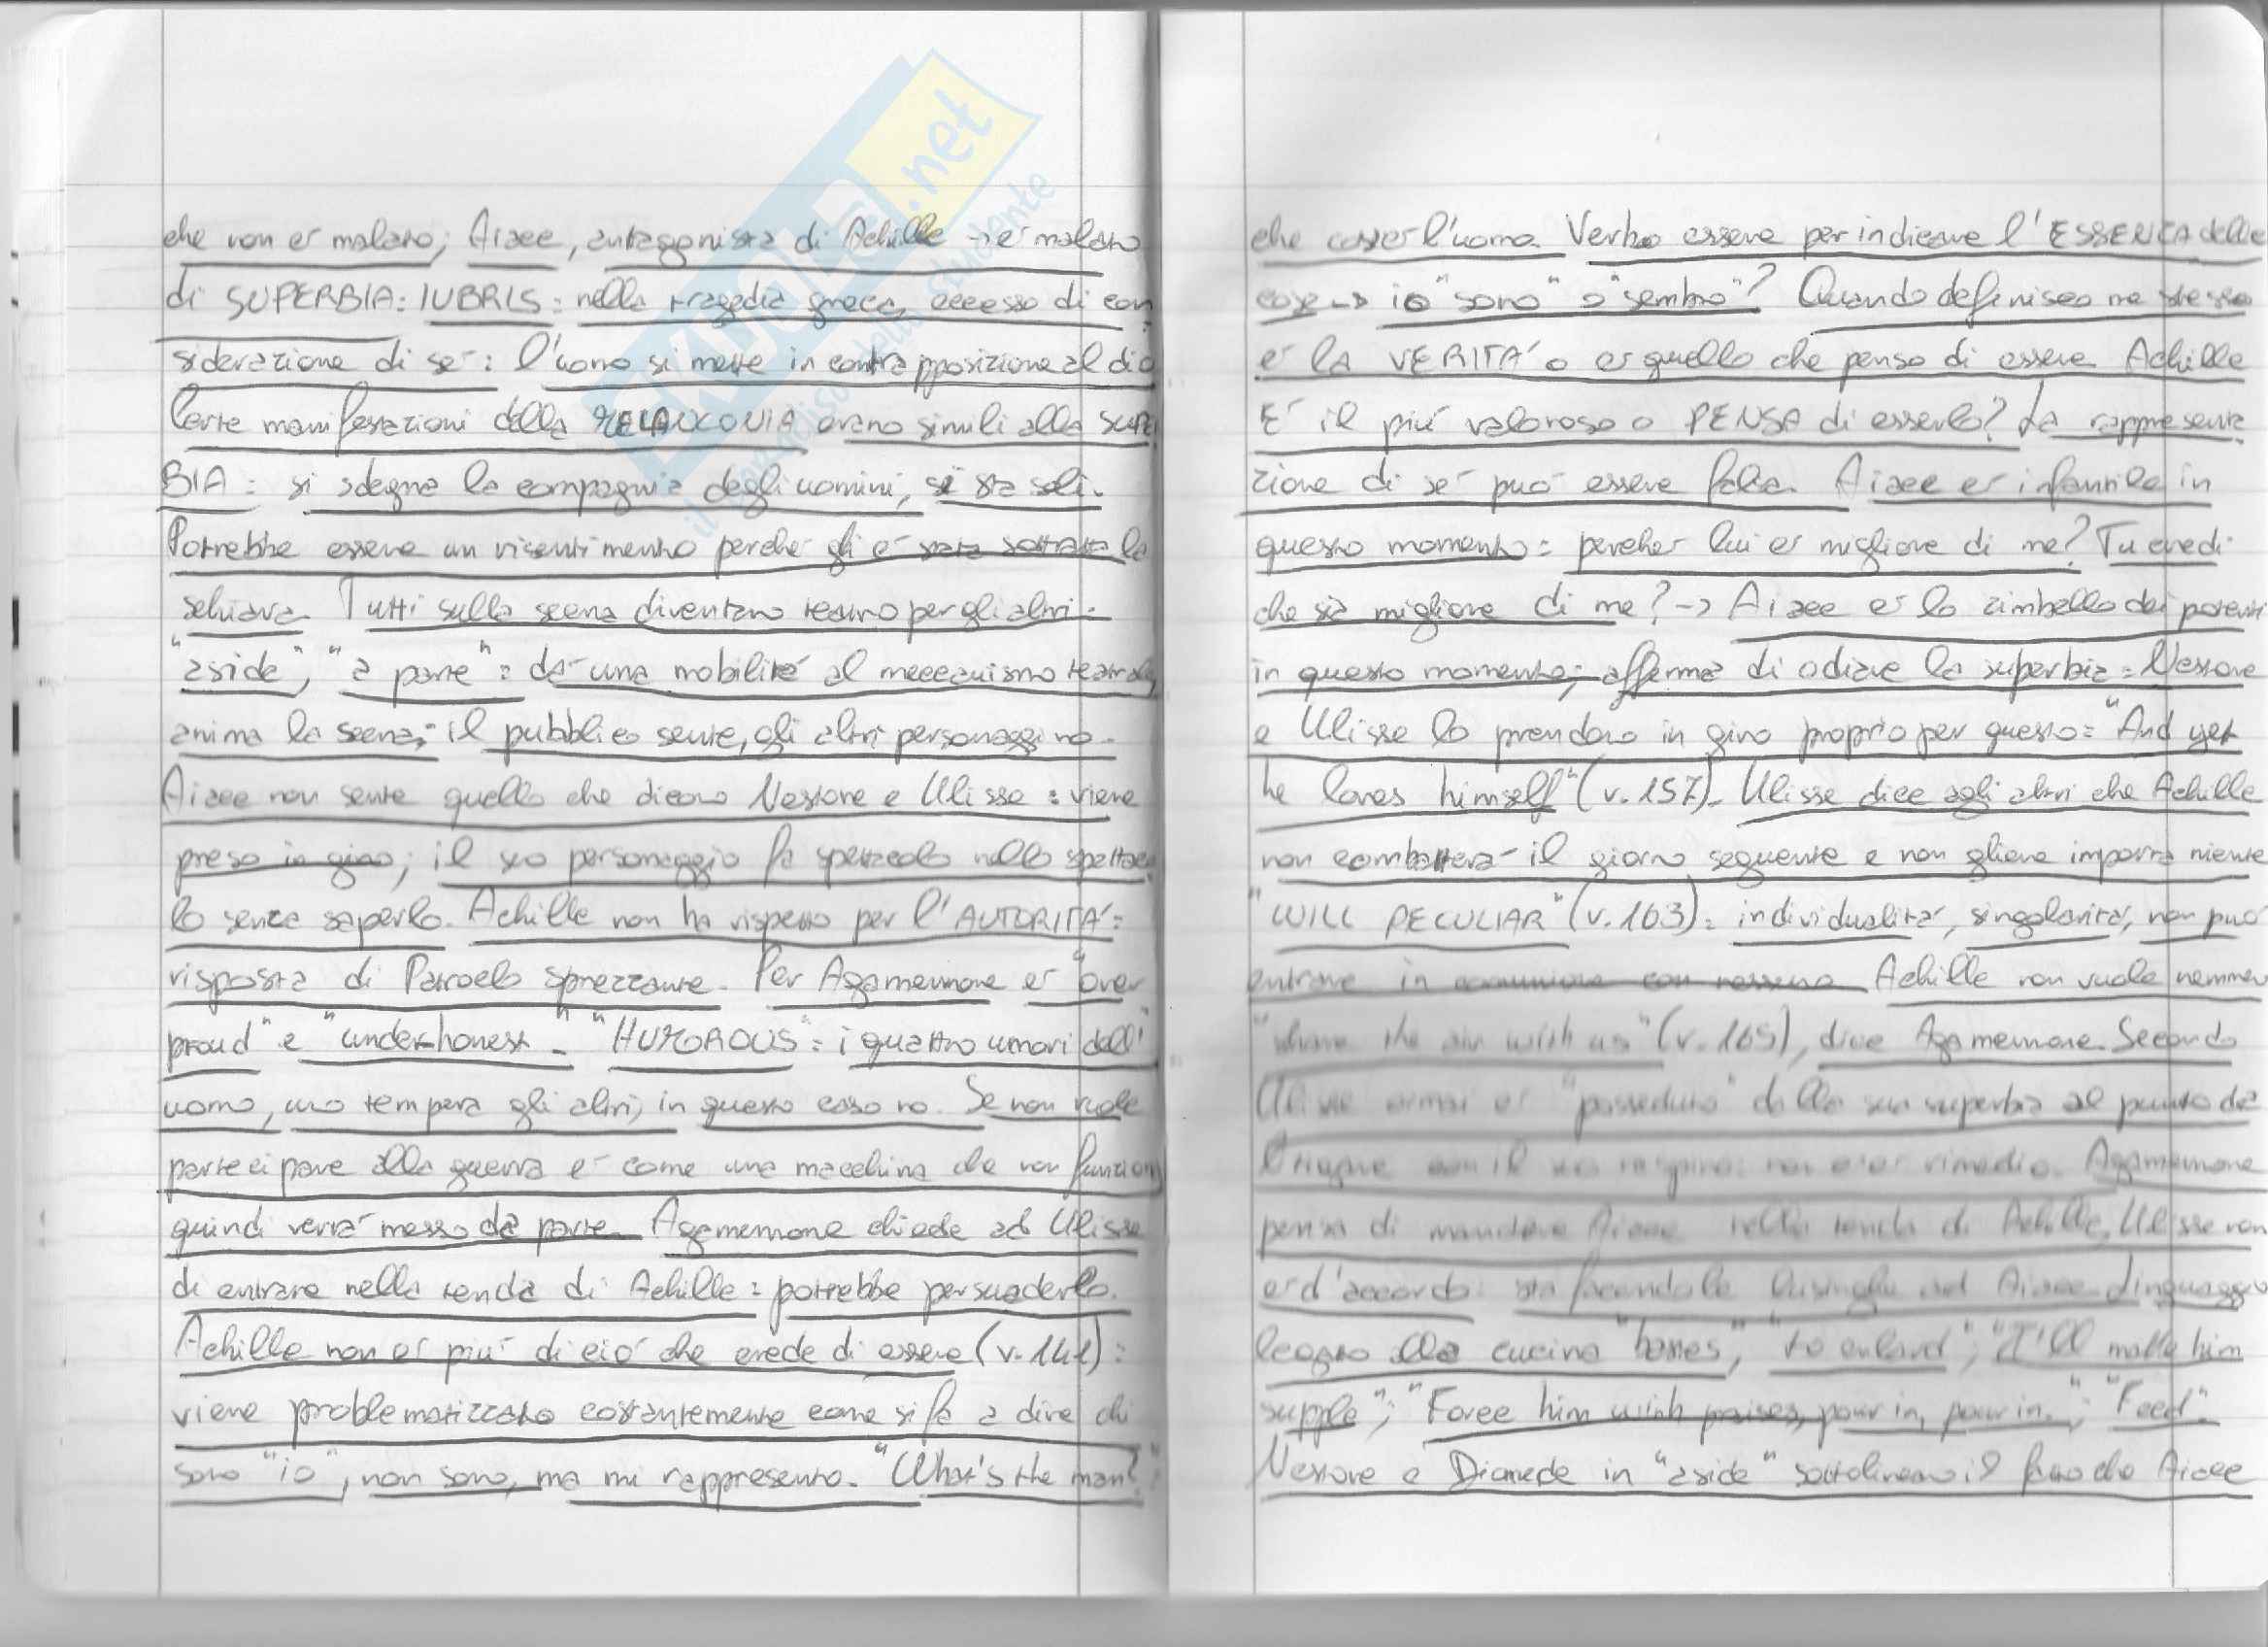 che non è malato; Aiace, antagonista di Achille → è malato
di SUPERBIA: IUBRIS: nella tragedia greca, eccesso di con
siderazione di sé: l'uomo si mette in contrapposizione al dio
Certe manifestazioni della MELANXONIA erano simili alla SUPE
BIA: si sdegna la compagnia degli uomini, si sta soli.
Potrebbe essere un risentimento perché gli è stata sottratta la
schiava. Tutti sulla scena diventano teatro per gli altri:
"aside", "a parte": dà una mobilità al meccanismo teatrale,
anima la scena: il pubblico sente, gli altri personaggi no.
Aiace non sente quello che dicono Nestore e Ulisse: viene
preso in giro; il suo personaggio fa spettacolo nello spettaco
lo senza saperlo. Achille non ha rispetto per l'AUTORITÀ:
risposta di Patroclo sprezzante. Per Agamennone è "over
proud" e "underhonest". "HUMOROUS": i quattro umori dell'
uomo, uno tempera gli altri, in questo caso no. Se non vuole
partecipare alla guerra è come una macchina che non funziona
quindi verrà messo da parte. Agamennone chiede ad Ulisse
di entrare nella tenda di Achille: potrebbe persuaderlo.
Achille non è più di ciò che crede di essere (v. 141):
viene problematizzato costantemente come si fa a dire chi
sono "io", non sono, ma mi rappresento. "What's the man?"
che cos'è l'uomo. Verbo essere per indicare l'ESSENZA delle
cose → io "sono" o "sembro"? Quando definisco me stesso
è LA VERITÀ o è quello che penso di essere Achille
È il più valoroso o PENSA di esserlo? La rappresenta
zione di sé può essere falsa. Aiace è infantile in
questo momento: perché lui è migliore di me? Tu credi
che sia migliore di me? → Aiace è lo zimbello dei potenti
in questo momento; afferma di odiare la superbia: Nestore
e Ulisse lo prendono in giro proprio per questo: "And yet
he loves himself" (v. 157). Ulisse dice agli altri che Achille
non combatterà il giorno seguente e non gliene importa niente
"WILL PECULIAR" (v. 163): individualità, singolarità, non può
entrare in comunione con nessuno Achille non vuole nemmeno
"share the air with us" (v. 165), dice Agamennone. Secondo
Ulisse ormai è "posseduto" dalla sua superbia al punto da
con il suo respiro: non c'è rimedio. Agamennone
pensa di mandare Aiace nella tenda di Achille, Ulisse non
è d'accordo: sta facendo le lusinghe ad Aiace. Linguaggio
legato alla cucina "bastes", "to enlard"; "I'll make him
supple"; "Force him with praises, pour in, pour in."; "Feed".
Nestore e Diomede in "aside" sottolineano il fatto che Aiace
SKUOLA.net
il paradiso dello studente